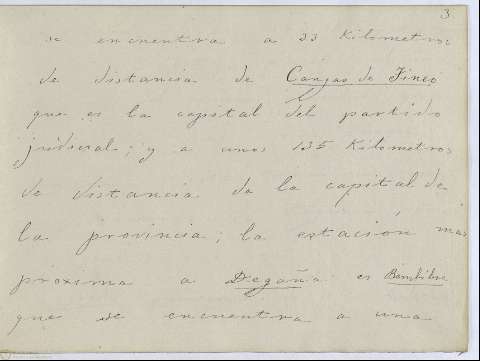 3
se encuentra a 33 Kilometros
de distancia de Cangas de Tineo
que es la capital del partido
judicial; y a unos 135 Kilometros
de distancia de la capital de
la provincia; la estación mas
proxima a Degaña es Bembibre
que se encuentra a una